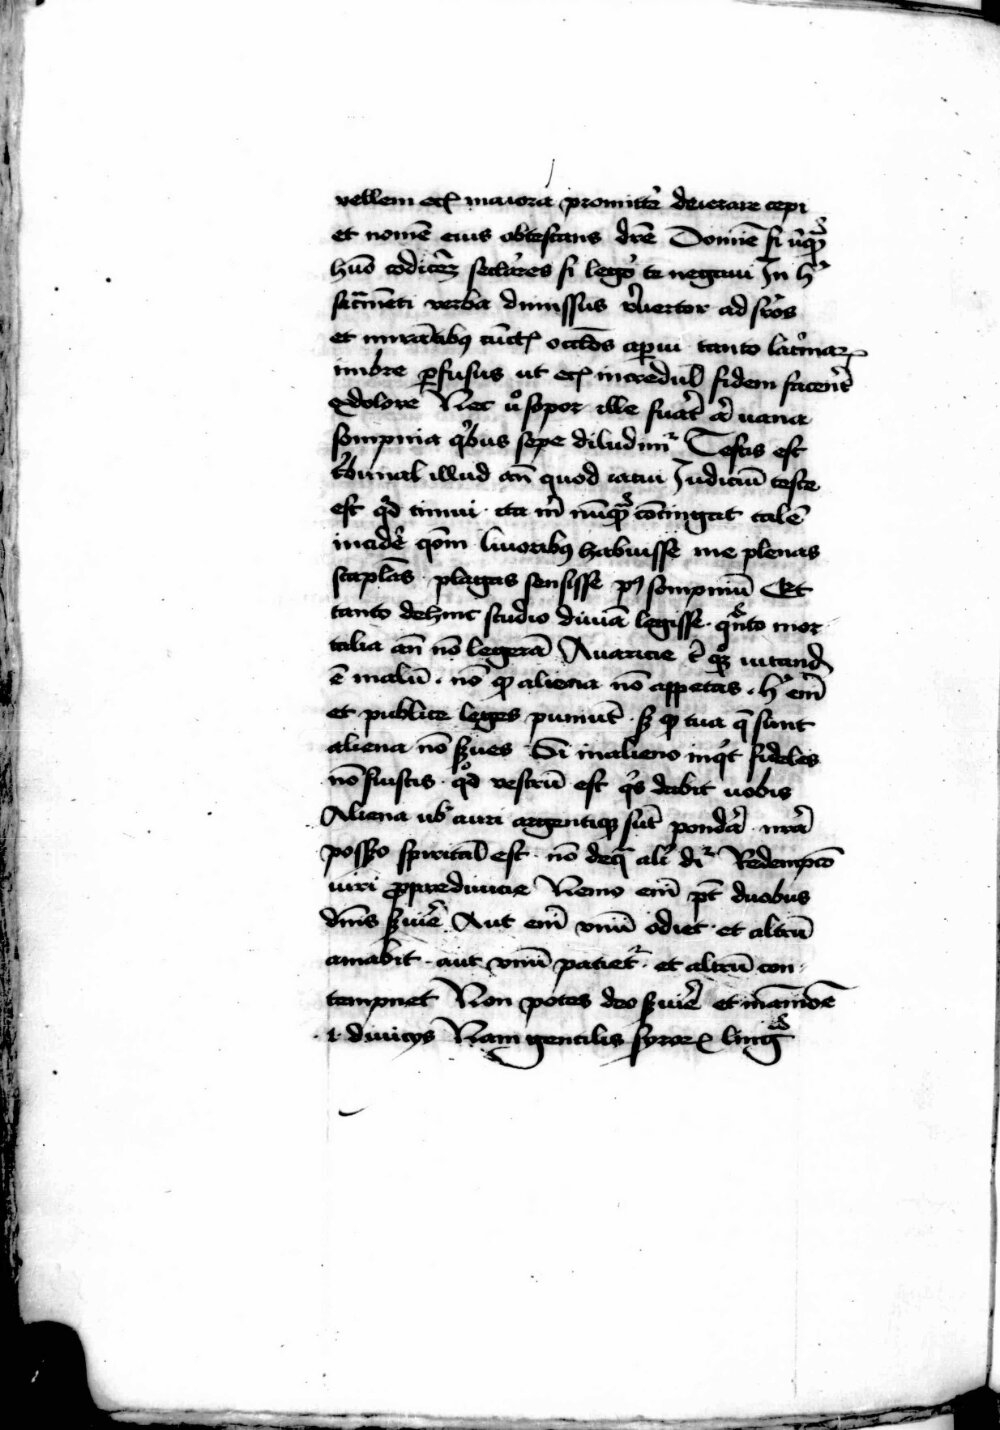 vellem etꝭ maiora promittē deierare cepi
et nomē eius obtestans dr̄e Domīe si ūqᷓ
huō codicēs seclāres si legō te negaui In hͨ
sac̄mēti verba dimissus r̄uertor ad sūos
et mirātibꝰ cūctꝭ occlōs aꝑui tanto lac̄marꝝ
imbre ꝑfusus ut etꝭ increduł fidem facerēt
edolore Nec uͦ sopor ille fuāt aͭ uana
sompnia qͥbus sepe diludimͬ Testis est
tͥbunal illud añ quod iacui Judiciū teste
est qͩ timui · ita m̄ nūqᷓ cōtingat talē
incidē qōm liuoribꝰ habuisse me plenas
scaplas · plagas sensisse pꝰ sompniū Et
tanto dehinc studio diuīa legisse · qᷓnto mor
talia añ nō legerā Auaricie t̄ qꝫ uitandꝭ
ē malū · nō qͦ aliena nō appetas · hͨ em̄
et publice leges puniūt · sꝫ qͦ tua q̄ sunt
aliena nō sꝫues Si inalieno inqͥt fideles
nō fuistis · qͦd vestrū est qͥs dabit uobis
Aliena nb̄ auri argentiqꝫ sūt pondā · nr̄a
possꝫo spiritał est · nō deq̄ alͥ dͬ Redempcō
uiri ꝓprediuicie Nemo em̄ pt̄ duobus
dn̄is sꝫuiē Aut em̄ vnū odiet · et altrū
amabit · aut vnū patietͬ · et altrū con
tempnet Non potes deo sꝫuiē et māmōe
· i · diuicys Nam gentilis syrorꝝ lingᷓ